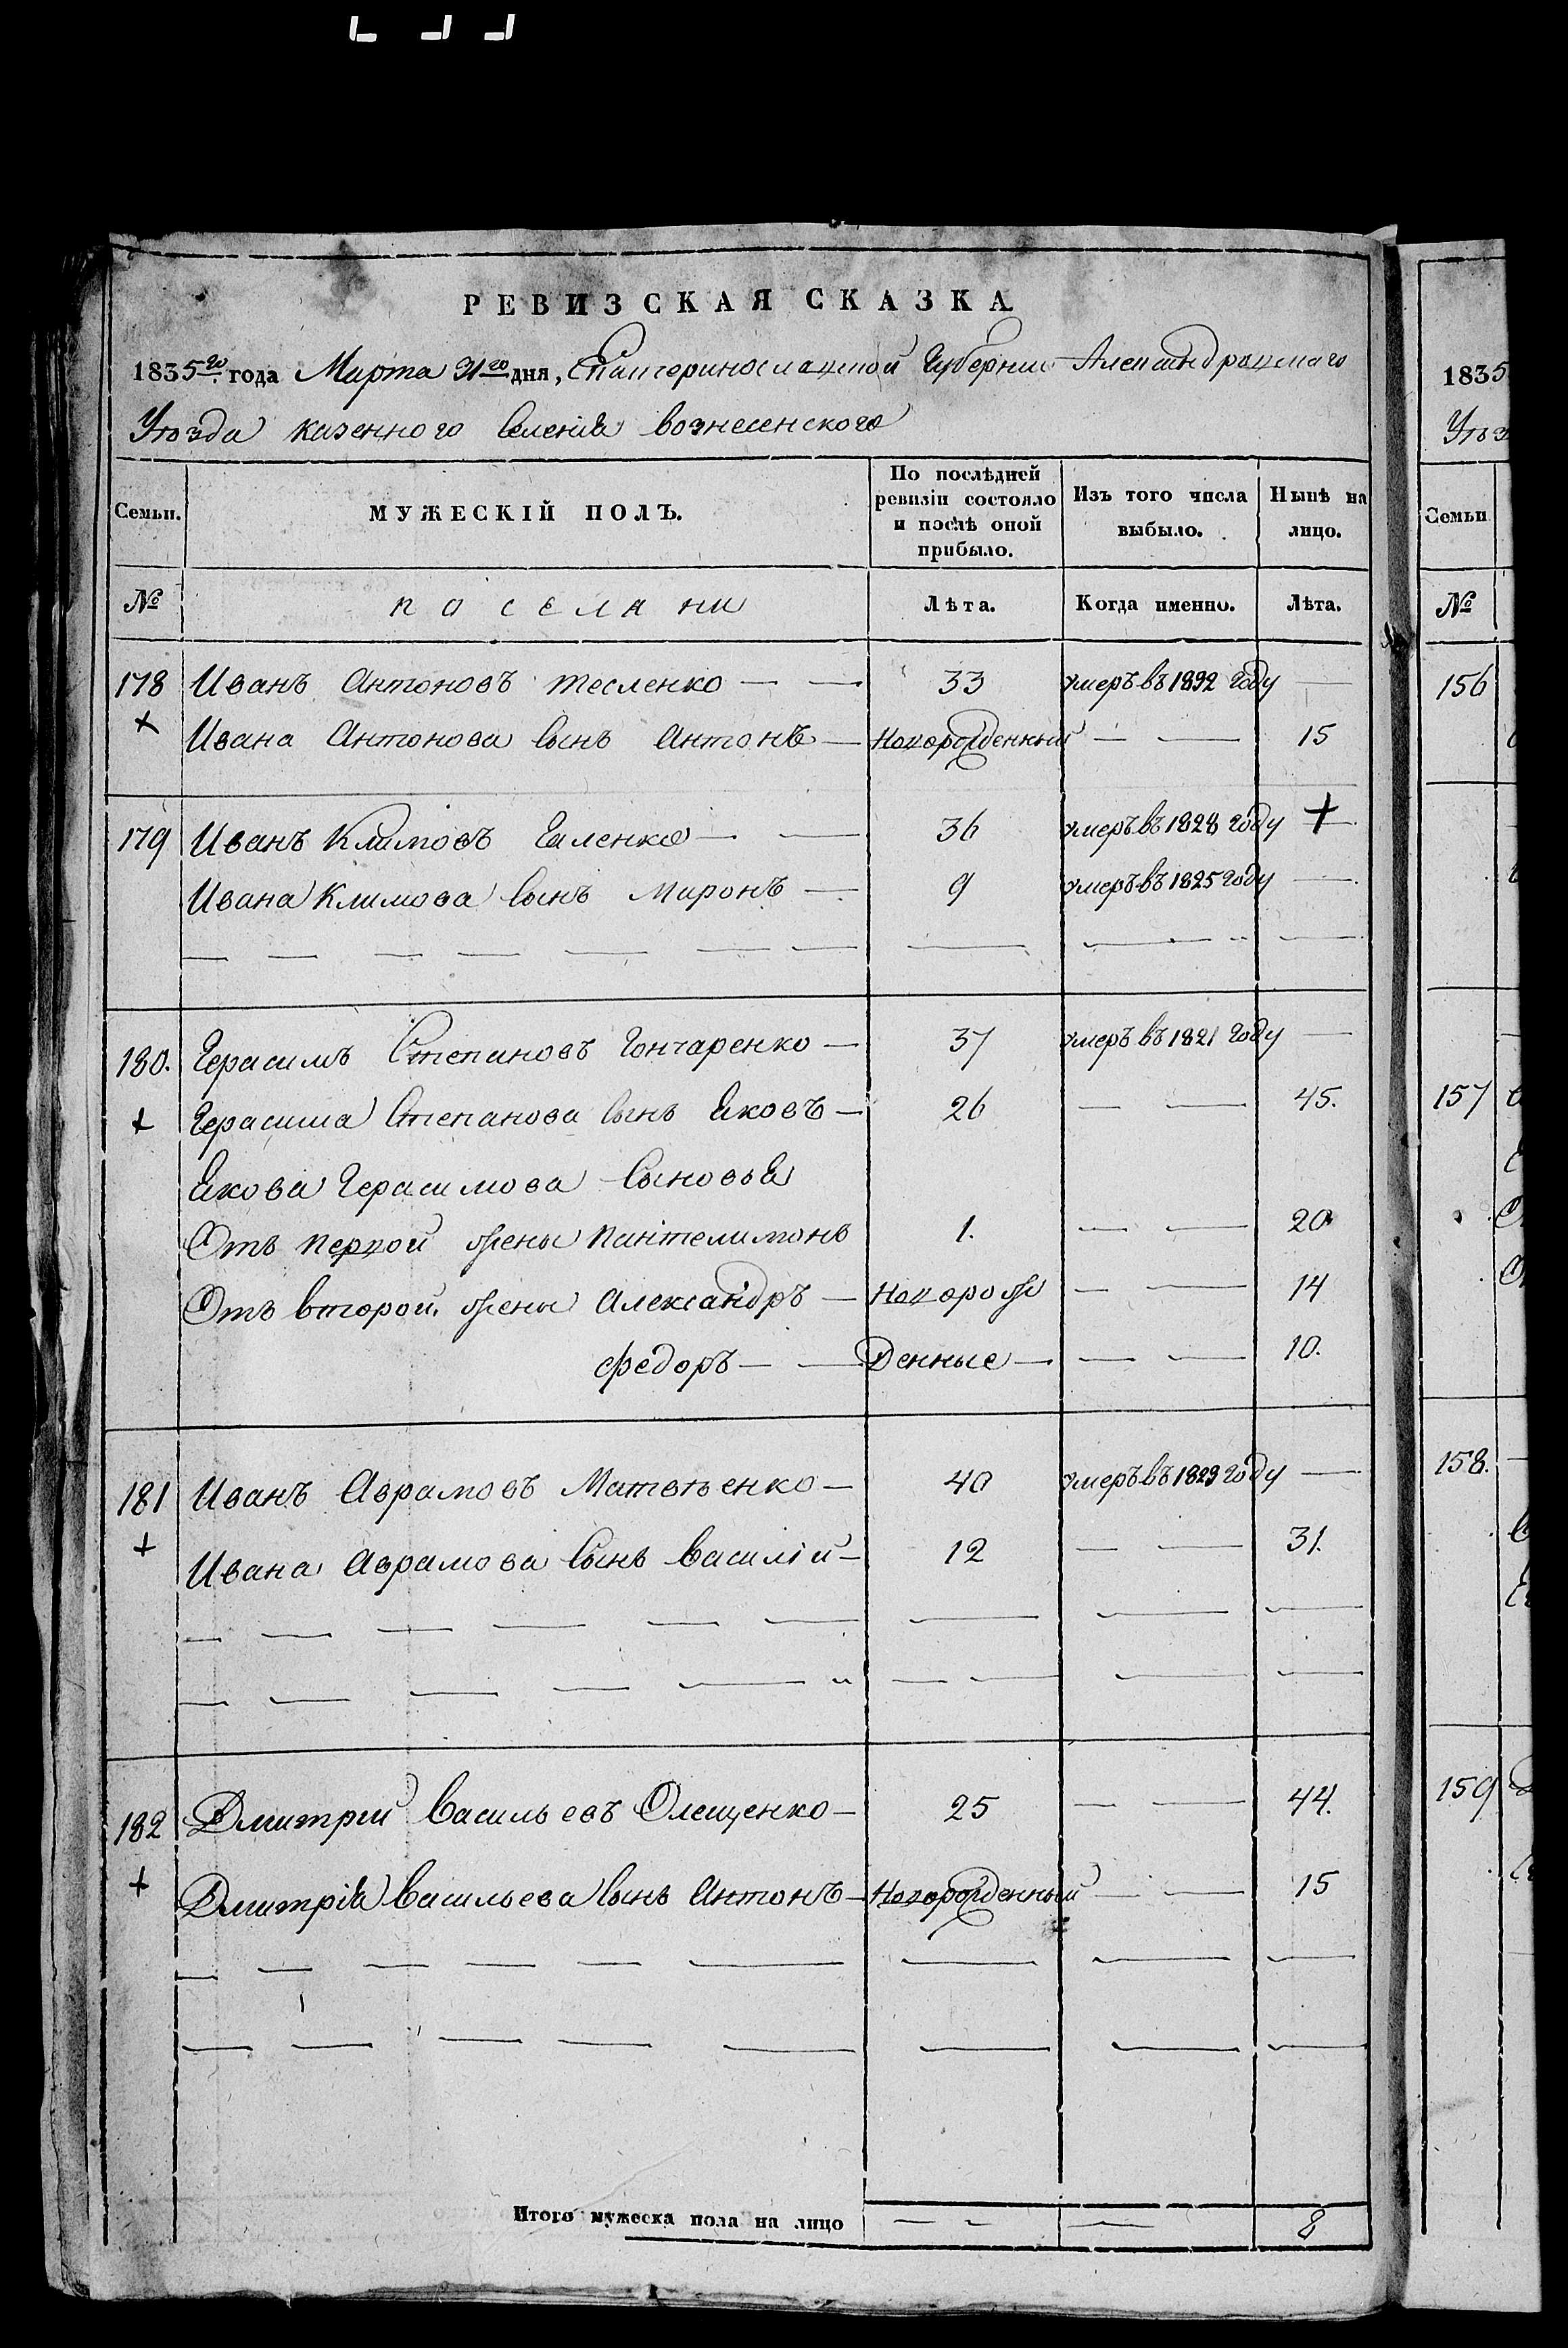 РЕВИЗСКАЯ СКАЗКА
1835го года Марта 31го дня, Екатеринославской Губернии Александровскаго
Уѣзда казенного селенія вознесенского
Семьи. МУЖЕСКІЙ ПОЛЪ. По послѣдней ревизіи состояло и послѣ оной прибыло. Изъ того числа выбыло. Нынѣ на лицо.
№ поселяни Лѣта. Когда именно. Лѣта.
178 Иванъ Антоновъ тесленко — — 33 умеръ въ 1832 году —
+ Ивана Антонова сынъ Антонъ — Новорожденный — — 15
179 Иванъ Климовъ Галенко — — 36 умеръ въ 1828 году +
Ивана Климова сынъ Миронъ — 9 умеръ въ 1825 году —
180. Герасимъ Степановъ Гончаренко — 37 умеръ въ 1821 году —
+ Герасима Степанова сынъ Яковъ — 26 — — 45.
Якова Герасимова Сыновья
Отъ первой жены Пантелимонъ 1. — — 20
Отъ второй жены Александръ — Новорож — — 14
Федоръ — — Денные — — — 10.
181 Иванъ Аврамовъ Матвѣенко — 40 умеръ въ 1829 году —
+ Ивана Аврамова Сынъ Василій — 12 — — 31.
182 Дмитрий Васильевъ Олещенко — 25 — — 44.
+ Дмитрія Васильева сынъ Антонъ — Новорожденный — — 15
Итого мужеска пола на лицо — — — 8
1835
Уѣз
Семьи
№
156
157
158.
159